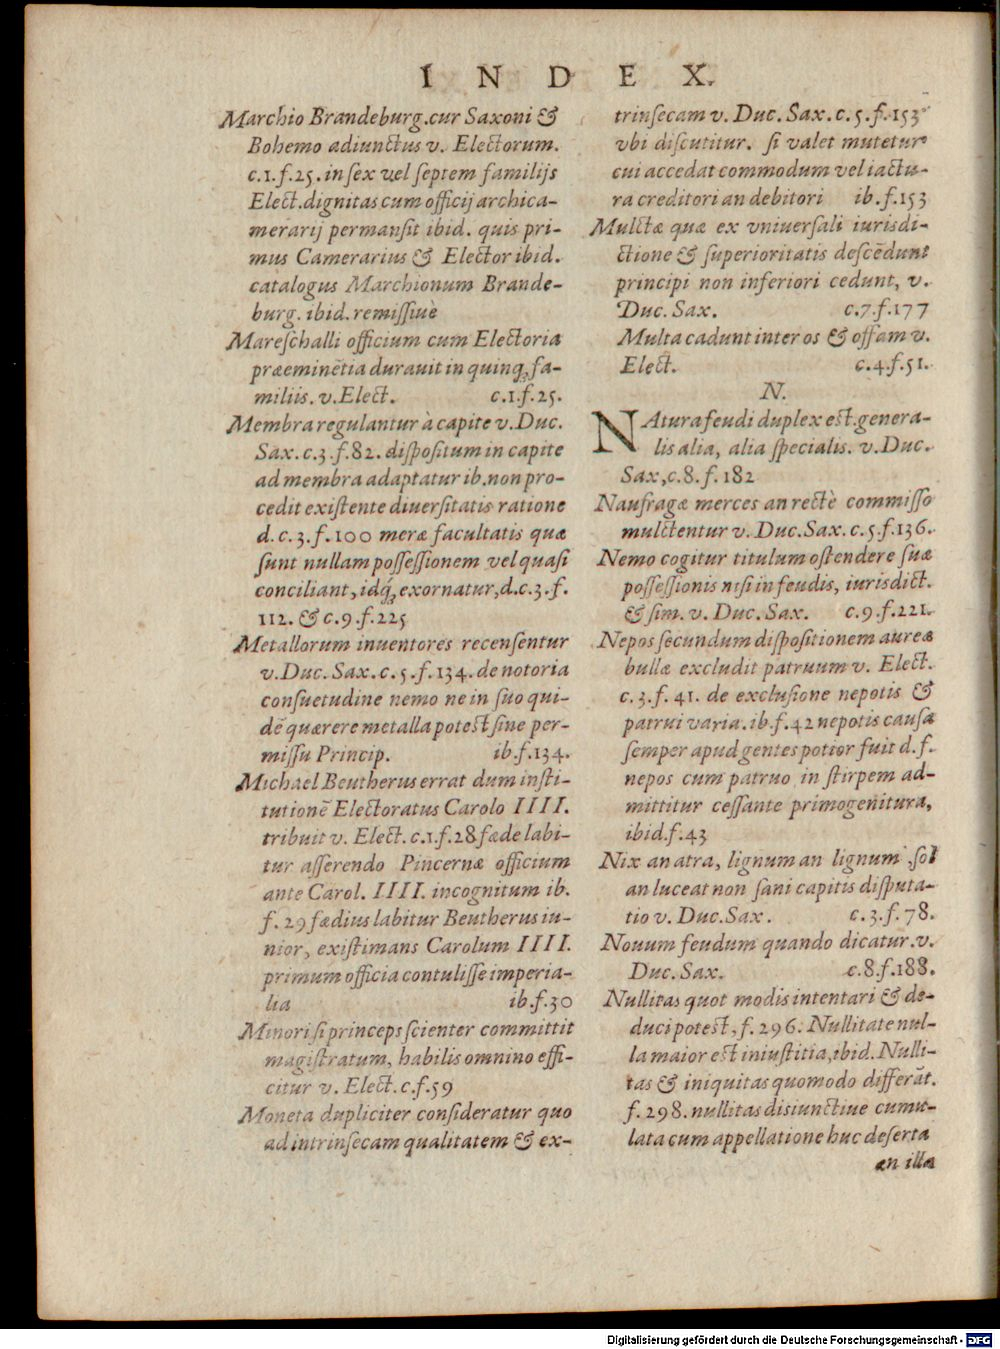 INDEX.
Marchio Brandeburg.cur Saxoni &
Bohemo adiunctus v. Electorum.
c.1.f.25. in sex vel septem familijs
Elect.dignitas cum officij archica-
merarij permansit ibid. quis pri-
mus Camerarius & Elector ibid.
catalogus Marchionum Brande-
burg. ibid. remissiuè
Mareschalli officium cum Electoria
præeminẽtia durauit in quinq; fa-
miliis. v. Elect. c.1.f.25.
Membra regulantur à capite v. Duc.
Sax. c.3.f.82. dispositum in capite
ad membra adaptatur ib. non pro-
cedit existente diuersitatis ratione
d. c. 3. f. 100 meræ facultatis quæ
sunt nullam possessionem vel quasi
conciliant, idq́; exornatur, d.c.3.f.
112. & c.9.f.225
Metallorum inuentores recensentur
v. Duc. Sax. c. 5. f. 134. de notoria
consuetudine nemo ne in suo qui-
dẽ quærere metalla potest sine per-
missu Princip. ib.f.134.
Michael Beutherus errat dum insti-
tutionẽ Electoratus Carolo IIII.
tribuit v. Elect. c.1.f.28 fæde labi-
tur asserendo Pincernæ officium
ante Carol. IIII. incognitum ib.
f. 29 fædius labitur Beutherus iu-
nior, existimans Carolum IIII.
primum officia contulisse imperia-
lia ib.f.30
Minori si princeps scienter committit
magistratum, habilis omnino effi-
citur v. Elect. c.f.59
Moneta dupliciter consideratur quo
ad intrinsecam qualitatem & ex-
trinsecam v. Duc. Sax. c. 5. f. 153
vbi discutitur. si valet mutetur
cui accedat commodum vel iactu-
ra creditori an debitori ib.f.153
Mulctæ quæ ex vniuersali iurisdi-
ctione & superioritatis descẽdunt
principi non inferiori cedunt, v.
Duc. Sax. c.7.f.177
Multa cadunt inter os & offam v.
Elect. c.4.f.51.
N.
NAtura feudi duplex est.genera-
lis alia, alia specialis. v. Duc.
Sax, c.8.f.182
Naufragæ merces an rectè commisso
mulctentur v. Duc. Sax. c.5.f.136.
Nemo cogitur titulum ostendere suæ
possessionis nisi in feudis, iurisdict.
& sim. v. Duc. Sax. c.9.f.221.
Nepos secundum dispositionem aureæ
bullæ excludit patruum v. Elect.
c. 3. f. 41. de exclusione nepotis &
patrui varia. ib. f. 42 nepotis causa
semper apud gentes potior fuit d. f.
nepos cum patruo in stirpem ad-
mittitur cessante primogenitura,
ibid.f.43
Nix an atra, lignum an lignum, sol
an luceat non sani capitis disputa-
tio v. Duc. Sax. c.3.f.78.
Nouum feudum quando dicatur. v.
Duc. Sax. c.8.f.188.
Nullitas quot modis intentari & de-
duci potest, f. 296. Nullitate nul-
la maior est iniustitia, ibid. Nulli-
tas & iniquitas quomodo differãt.
f. 298. nullitas disiunctiue cumu-
lata cum appellatione huc deserta
an illa
Digitalisierung gefördert durch die Deutsche Forschungsgemeinschaft - DFG